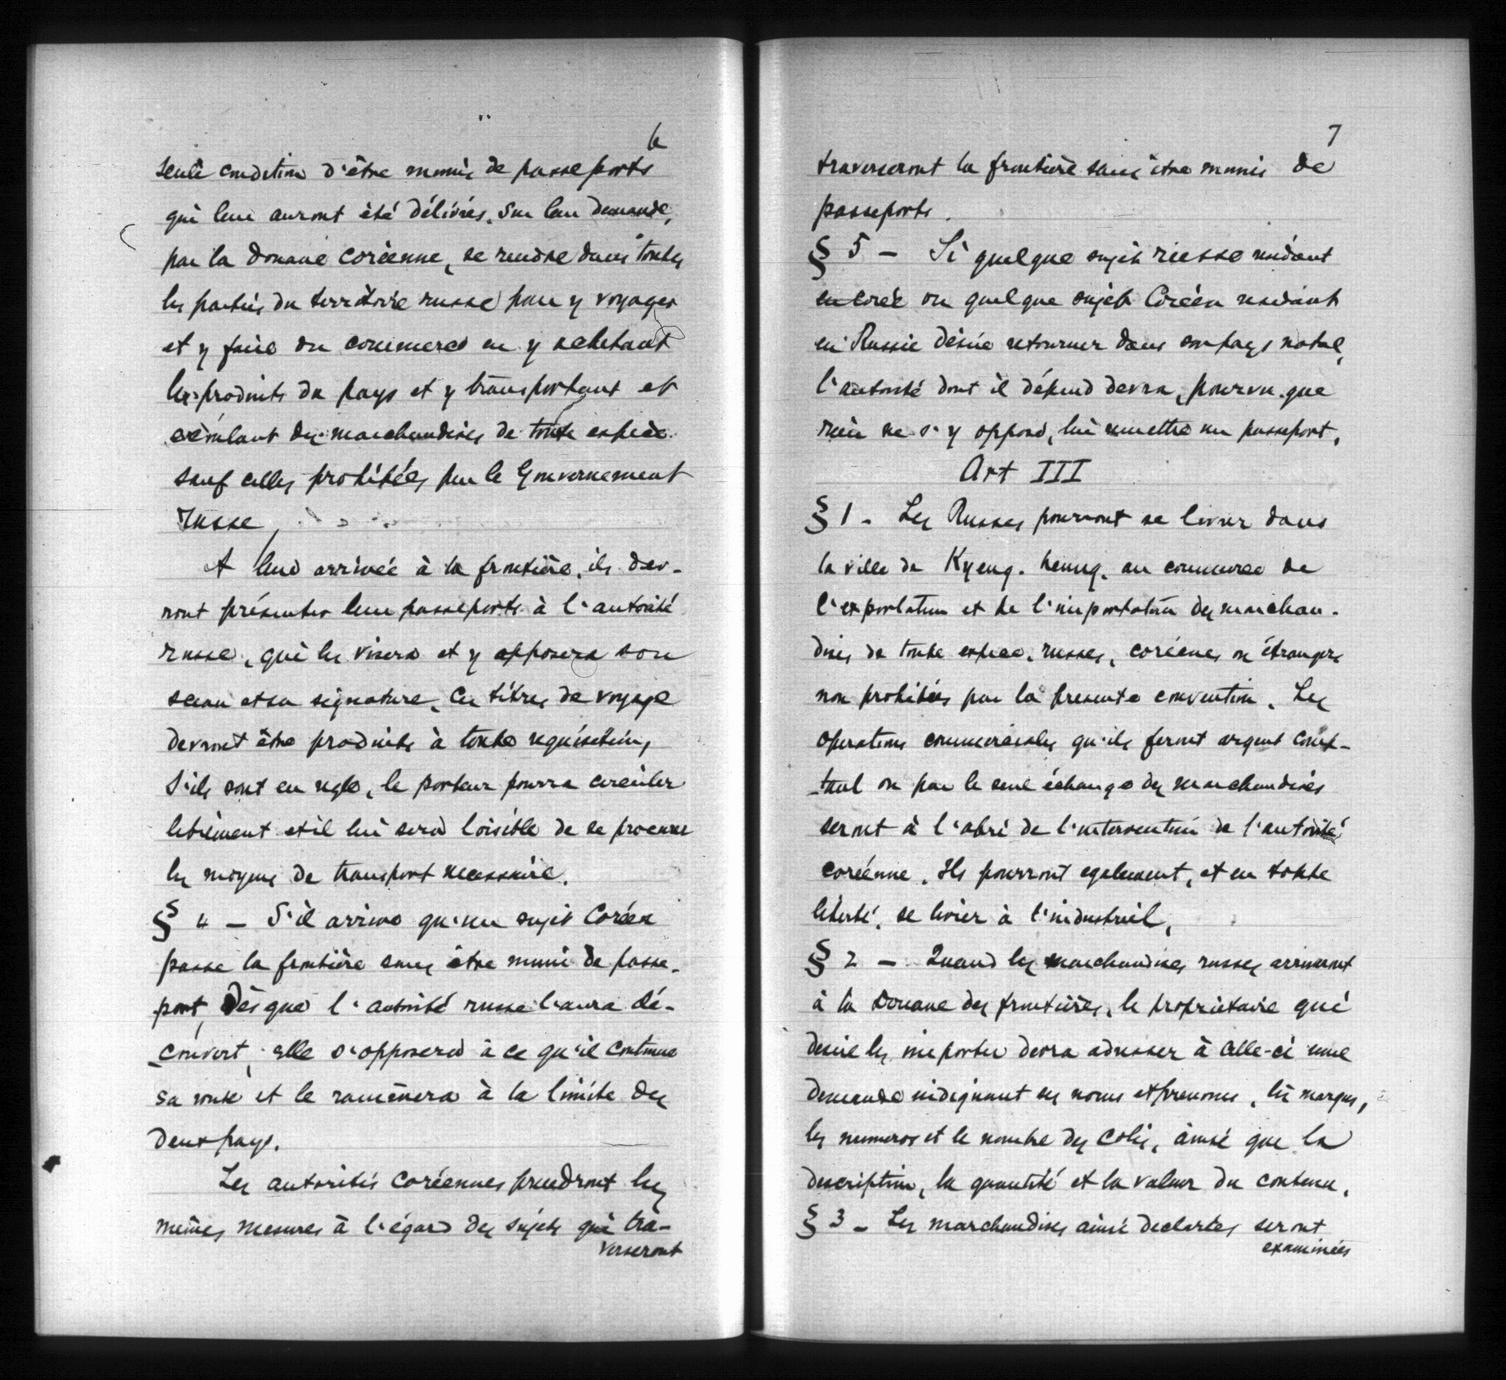 6
seule condition d'être munis de passeports
qui leur auront été délivrés, sur leur demande,
par la Douane coréenne, se rendre dans toutes
les parties du territoire russe pour y voyager
et y faire du commerce en y achetant
les produits du pays et y transportant et
écoulant des marchandises de toute espèce
sauf celles prohibées par le Gouvernement
russe,
A leur arrivée à la frontière, ils dev-
ront présenter leur passeports à l'autorité
russe, qui les visera et y apposera son
sceau et sa signature. Ces titres de voyage
devront être produits à toute réquisition,
S'ils sont en règle, le porteur pourra circuler
librement et il lui sera loisible de se procurer
les moyens de transport necessaire.
§ 4 - S'il arrive qu'un sujet Coréen
passe la frontière sans être muni de passe-
port, dès que l'autorité russe l'aura dé-
couvert, elle s'opposera à ce qu'il continue
sa route et le ramènera à la limite des
deux pays.
Les autorités coréennes prendront les
mêmes mesures à l'égard des sujets qui tra-
verseront
7
traverseront la frontière sans être munis de
passeports.
§ 5 - Si quelque sujet russe résidant
en Corée ou quelque sujet Coréen residant
en Russie désire retourner dans son pays natal,
l'autorité dont il dépend devra, pourvu que
rien ne s'y oppose, lui remettre un passeport.
Art III
§ 1 - Les Russes pourront se livrer dans
la ville de Kyeng-heung, au commerce de
l'exportation et de l'importation des marchan-
dises de toute espece, russes, coréenes ou étrangers
non prohibées par la presente convention. Les
operations commerciales qu'ils feront argent comp-
tant ou par le seul échange des marchandises
seront à l'abri de l'intervention de l'autorité
coréenne. Ils pourront egalement, et en toute
liberté, se livrer à l'industriel,
§ 2 - Quand les marchandises russes arriveront
à la Douane des frontières, le propriétaire qui
desire les importer devra adresser à celle-ci une
demande indiquant ses noms et prenoms, les marques,
les numeros et le nombre des colis, ainsi que la
description, la quantité et la valeur du contenu.
§ 3 - Les marchandises ainsi declarées seront
examinées